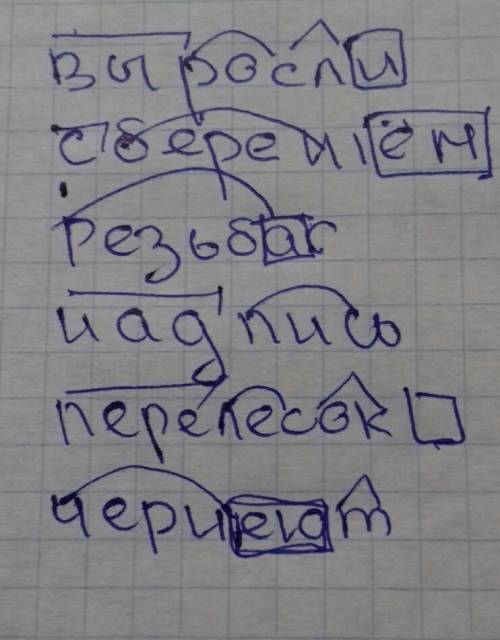 выросли
сбережём
резьба
надпись
перелесок
чернеют